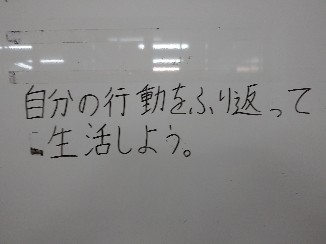 自分の行動をふり返って
生活しよう。